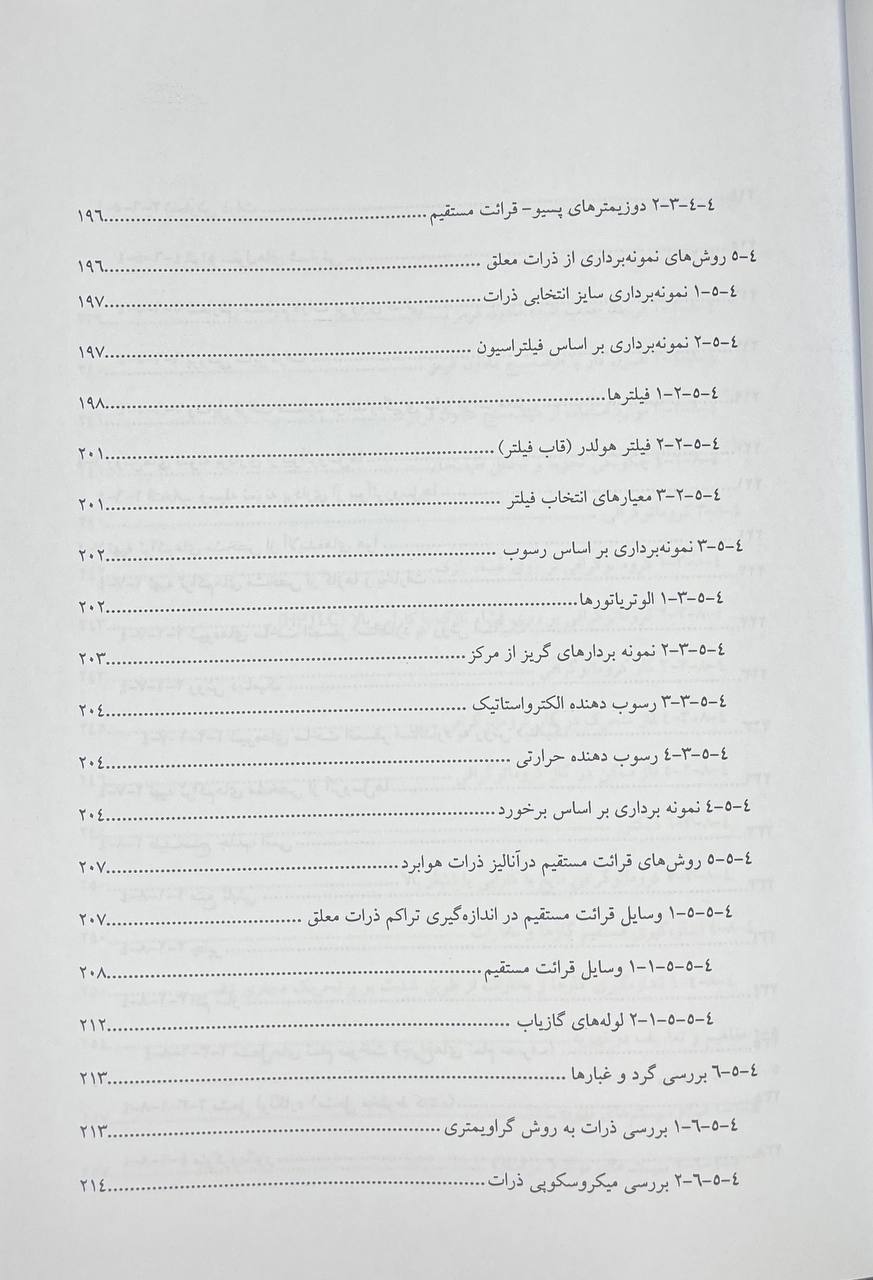 ٤-٤-٣-٢ دوزیمترهای پسیو- قرائت مستقیم........١٩٦
٤-٥ روش‌های نمونه‌برداری از ذرات معلق........١٩٦
٤-٥-١ نمونه‌برداری سایز انتخابی ذرات........١٩٧
٤-٥-٢ نمونه‌برداری بر اساس فیلتراسیون........١٩٧
٤-٥-٢-١ فیلترها........١٩٨
٤-٥-٢-٢ فیلتر هولدر (قاب فیلتر)........٢٠١
٤-٥-٢-٣ معیارهای انتخاب فیلتر........٢٠١
٤-٥-٣ نمونه‌برداری بر اساس رسوب........٢٠٢
٤-٥-٣-١ الوتریاتورها........٢٠٢
٤-٥-٣-٢ نمونه بردارهای گریز از مرکز........٢٠٣
٤-٥-٣-٣ رسوب دهنده الکترواستاتیک........٢٠٤
٤-٥-٣-٤ رسوب دهنده حرارتی........٢٠٤
٤-٥-٤ نمونه برداری بر اساس برخورد........٢٠٤
٤-٥-٥ روش‌های قرائت مستقیم درآنالیز ذرات هوابرد........٢٠٧
٤-٥-٥-١ وسایل قرائت مستقیم در اندازه‌گیری تراکم ذرات معلق........٢٠٧
٤-٥-٥-١-١ وسایل قرائت مستقیم........٢٠٨
٤-٥-٥-١-٢ لوله‌های گازیاب........٢١٢
٤-٥-٦ بررسی گرد و غبارها........٢١٣
٤-٥-٦-١ بررسی ذرات به روش گراویمتری........٢١٣
٤-٥-٦-٢ بررسی میکروسکوپی ذرات........٢١٤